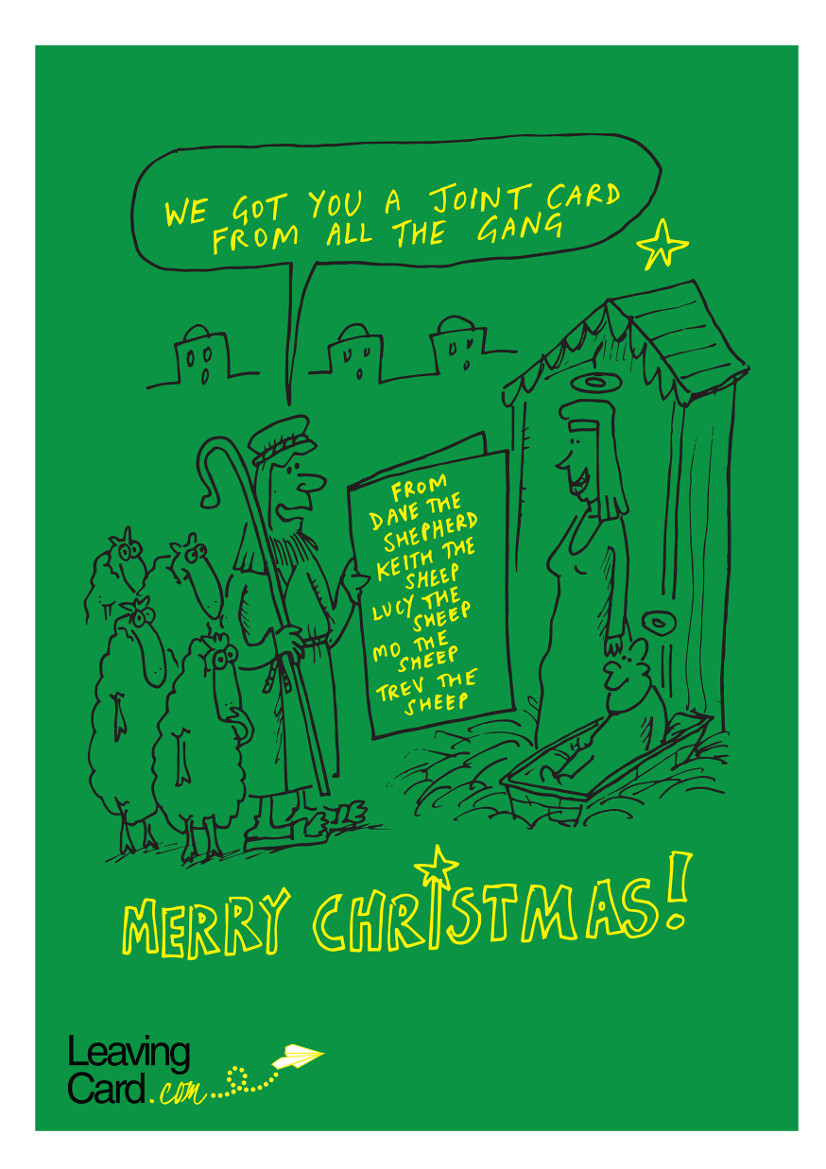 WE GOT YOU A JOINT CARD
FROM ALL THE GANG
FROM
DAVE THE
SHEPHERD
KEITH THE
SHEEP
LUCY THE
SHEEP
MO THE
SHEEP
TREV THE
SHEEP
MERRY CHRISTMAS!
Leaving
Card.com